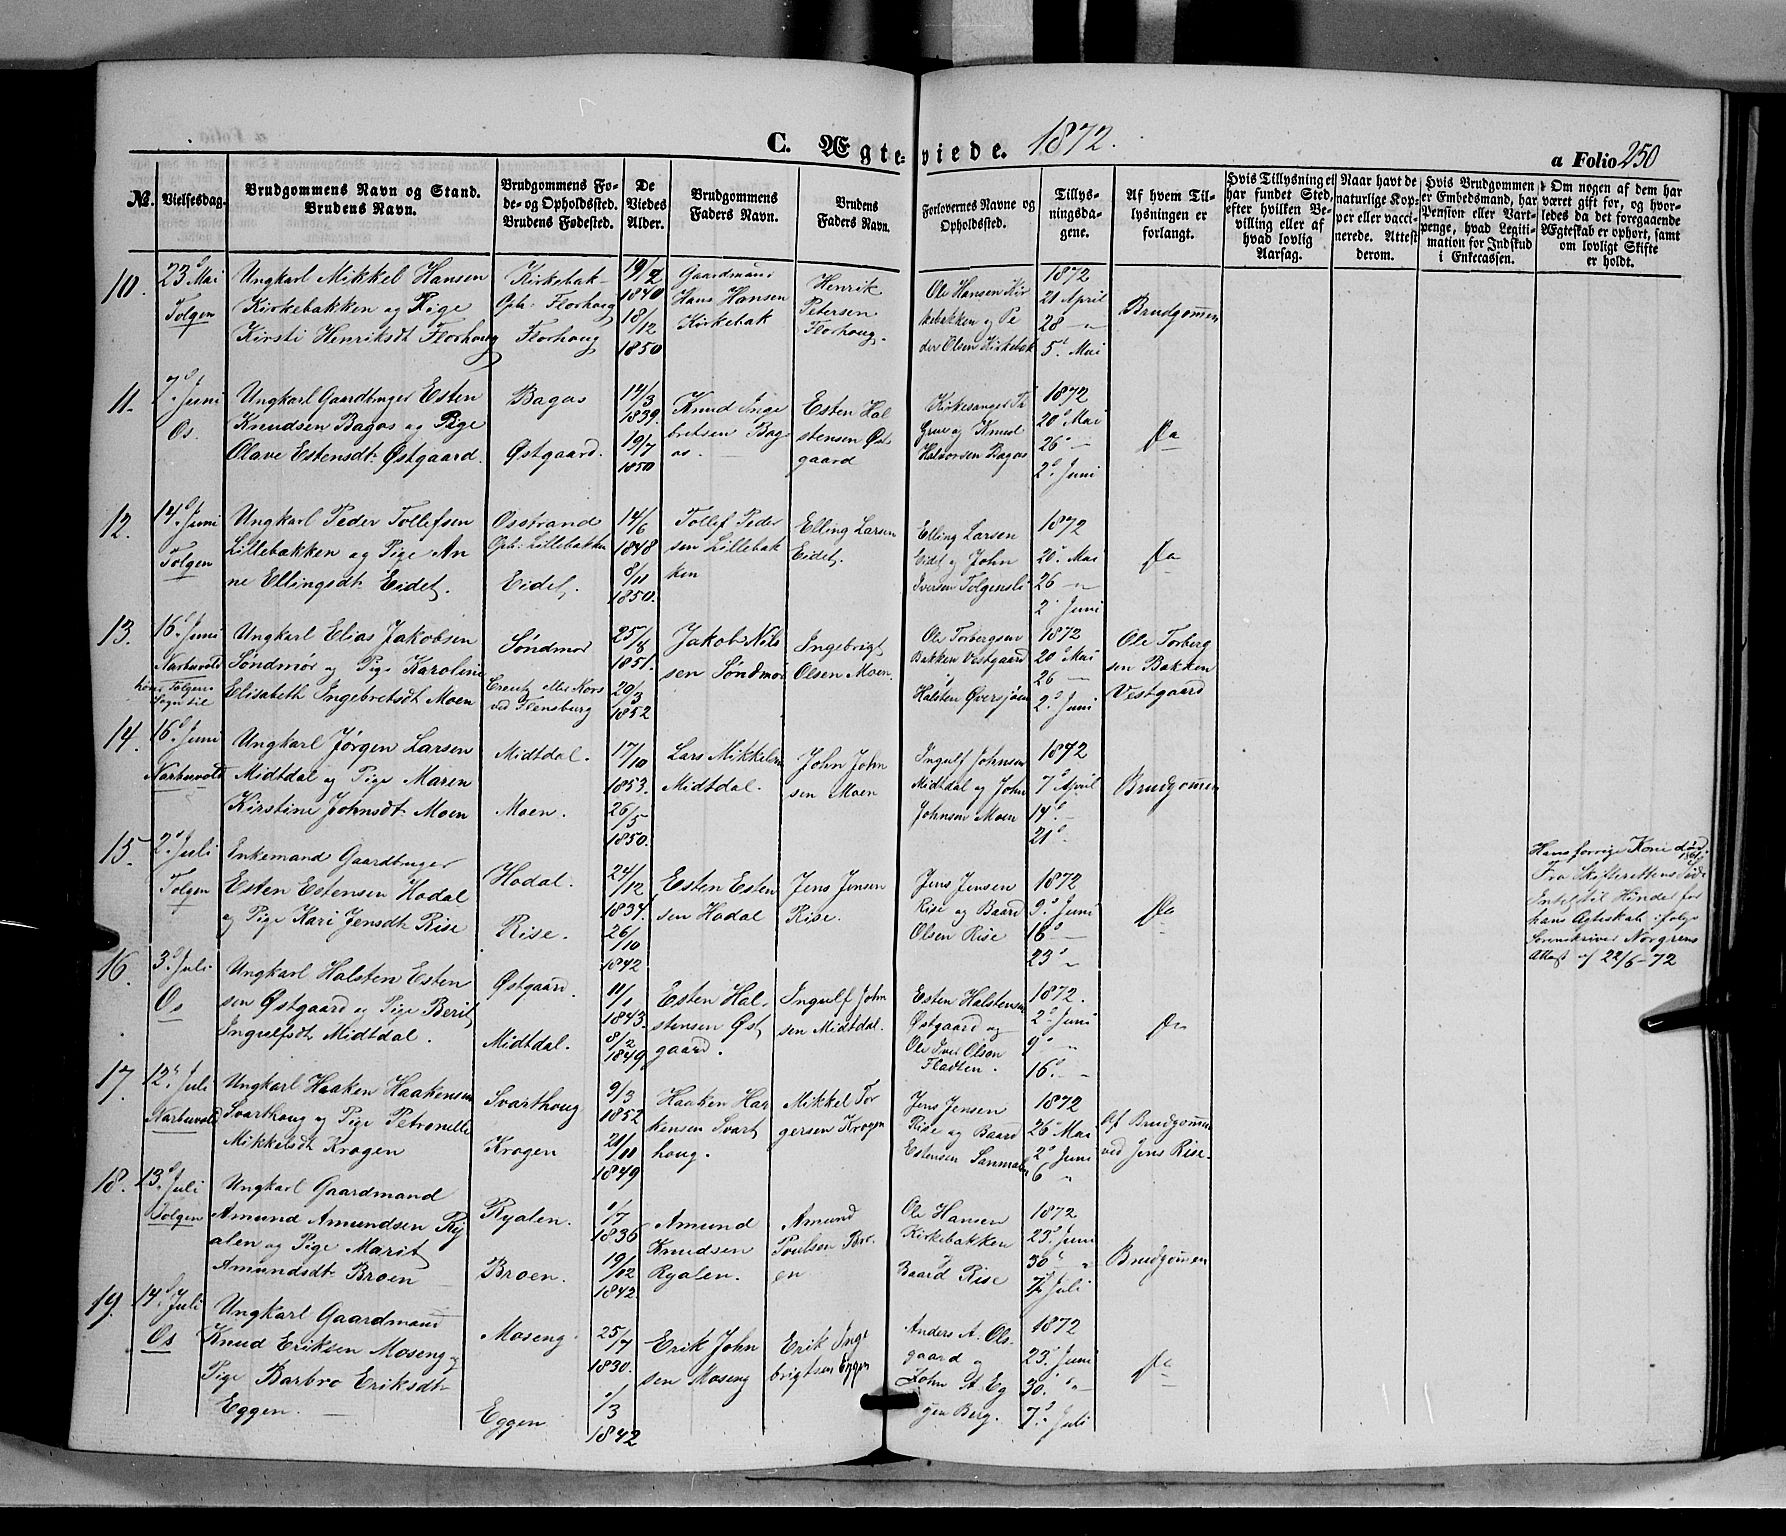 C. Ægteviede. 1872.
a Folio 250
№.
Vielsesdag.
Brudgommens Navn og Stand.
Brudens Navn.
Brudgommens Fø-
de- og Opholdssted.
Brudens Fødested.
De
Viedes
Alder.
Brudgommens
Faders Navn.
Brudens
Faders Navn.
Forlovernes Navne og
Opholdssted.
Tillys-
ningsda-
gene.
Af hvem Til-
lysningen er
forlangt.
Hvis Tillysning ei
har fundet Sted,
efter hvilken Be-
villing eller af
hvad lovlig
Aarsag.
Naar havt de
naturlige Kop-
per eller vacci-
nerede. Attest
derom.
Hvis Brudgommen
er Embedsmand, har
Pension eller Vart-
penge, hvad Legiti-
mation for Indskud
i Enkecassen.
Om nogen af dem har
været gift før, og hvor-
ledes da det foregaaende
Ægteskab er ophørt, samt
om lovligt Skifte
er holdt.
10.
23d Mai
Tolgen
Ungkarl Mikkel Hansen
Kirkebakken og Pige
Kirsti Henriksdt Florhoug
Kirkebak
Oph: Florhoug
Florhoug
19/2
1840
18/12
1850
Gaardmand
Hans Hansen
Kirkebak
Henrik
Petersen
Florhoug.
Ole Hansen Kir
kebakken og Pe
der Olsen Kirkebak
1872
21 April
28 — "
5d Mai
Brudgommen
11.
7d Juni
Os.
Ungkarl Gaardbruger Esten
Knudsen Bagos og Pige
Olave Estensdt. Østgaard.
Bagos
Østgaard.
14/3
1839.
19/7
1850
Knud Inge
bretsen Bag
os.
Esten Hal
stensen Øst
gaard
Kirkesanger
Grue og Knud
Halvorsen Bagos
1872
20d Mai
26d —
2d Juni
Do
12.
14d Juni
Tolgen
Ungkarl Peder Tollefsen
Lillebakken og Pige An
ne Ellingsdt. Eidet.
Osstrand
Oph: Lillebakken
Eidet.
14/6
1848
8/11
1850.
Tollef Peder
sen Lillebak
ken
Elling Larsen
Eidet.
Elling Larsen
Eidet og John
Iversen Tolgensli
1872
20d Mai
26 — "
2d Juni
Do
13.
16d Juni
Narbuvold
Tolgens
Sogn til
Ungkarl Elias Jakobsen
Søndmør og Pige Karoline
Elisabeth Ingebretsdt Moen
Søndmør
Creutz eller Kors
ved Flensburg
25/8
1851.
20/3
1852
Jakob Nils
sen Søndmør
Ingebrigt
Olsen Moen.
Ole Torbergsen
Bakken Vestgaard
Halsten Øversjøen
1872
20d Mai
26 —
2d Juni
Ole Torberg
sen Bakken
Vestgaard
14.
16d Juni
Narbuvold
Ungkarl Jørgen Larsen
Midtdal og Pige Maren
Kirstine Johnsdt. Moen
Midtdal.
Moen.
17/10
1853.
26/5
1850.
Lars Mikkelsen
Midtdal.
John John
sen Moen
Ingulf Johnsen
Midtdal og John
Johnsen Moen
1872
7d April
14d —
21d
Brudgommen
15.
2d Juli
Tolgen
Enkemand Gaardbruger
Esten Estensen Hodal
og Pige Kari Jensdt Rise
Hodal.
Rise.
24/12
1834.
26/10
1842
Esten Esten
sen Hodal
Jens Jensen
Rise.
Jens Jensen
Rise og Baard
Olsen Rise
1872
9d Juni
16d —
23d "
Do
Hans forrige Kone død
1861.
Fra Skifterettens Side
Intet til Hinder for
hans Ægteskab ifølge
Sorenskriver Norgrens
Attest af 22/6-72
16.
3d Juli
Os
Ungkarl Halsten Esten
sen Østgaard og Pige Berit
Ingulfsdt Midtdal.
Østgaard.
Midtdal.
11/1
1843.
8/2
1849
Esten Hal-
stensen Øst
gaard.
Ingulf John
sen Midtdal.
Esten Halstensen
Østgaard og
Ole Iver Olson
Fladten.
1872.
2d Juni
9d "
16d —
Do
17.
12d Juli
Narbuvold
Ungkarl Haaken Haakensen
Svarthoug og Pige Petronelle
Mikkelsdt Krogen
Svarthoug
Krogen
9/3
1852
21/11
1849
Haaken Haa
kensen Svart
houg.
Mikkel Tor
gersen Krogen
Jens Jensen
Rise og Baard
Estensen Sanmalen
1872
26d Mai
2d Juni
6 "
Af Brudgommen
ved Jens Rise.
18.
13d Juli
Tolgen
Ungkarl Gaardmand
Amund Amundsen Ry
alen og Pige Marit
Amundsdt. Broen
Ryalen.
Broen.
1/7
1836
19/12
1842.
Amund
Knudsen
Ryalen.
Amund
Poulsen Bro-
en
Ole Hansen
Kirkebakken
Baard Rise
1872
23d Juni
30d "
7d Juli
Brudgommen
19.
14d Juli
Os
Ungkarl Gaardmand
Knud Eriksen Moseng og
Pige Barbro Eriksdt
Eggen. —
Moseng.
Eggen
25/7
1830.
1/3
1842
Erik John
sen Moseng
Erik Inge
brigtsen Eggen
Anders A. Ols-
gaard og
John A. Eg
gen Berg.
1872
23d Juni
30d "
7d Juli
Do